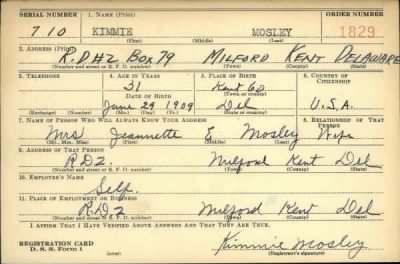 SERIAL NUMBER 1. NAME (Print) ORDER NUMBER
710 KIMMIE MOSLEY 1829
(First) (Middle) (Last)
2. ADDRESS (Print)
R.D #2 Box 79 MILFORD KENT DELAWARE
(Number and street or R. F. D. number) (Town) (County) (State)
3. TELEPHONE 4. AGE IN YEARS 5. PLACE OF BIRTH 6. COUNTRY OF CITIZENSHIP
31 Kent Co
DATE OF BIRTH (Town or county)
June 29 1909 Del U.S.A.
(Exchange) (Number) (Mo.) (Day) (Yr.) (State or country)
7. NAME OF PERSON WHO WILL ALWAYS KNOW YOUR ADDRESS 8. RELATIONSHIP OF THAT PERSON
Mrs Jeannette E Mosley Wife
(Mr., Mrs., Miss) (First) (Middle) (Last)
9. ADDRESS OF THAT PERSON
R.D 2 Milford Kent Del
(Number and street or R. F. D. number) (Town) (County) (State)
10. EMPLOYER'S NAME
Self
11. PLACE OF EMPLOYMENT OR BUSINESS
R.D. 2 Milford Kent Del
(Number and street or R. F. D. number) (Town) (County) (State)
I AFFIRM THAT I HAVE VERIFIED ABOVE ANSWERS AND THAT THEY ARE TRUE.
REGISTRATION CARD
D. S. S. Form 1 (over) Kimmie Mosley
(Registrant's signature)